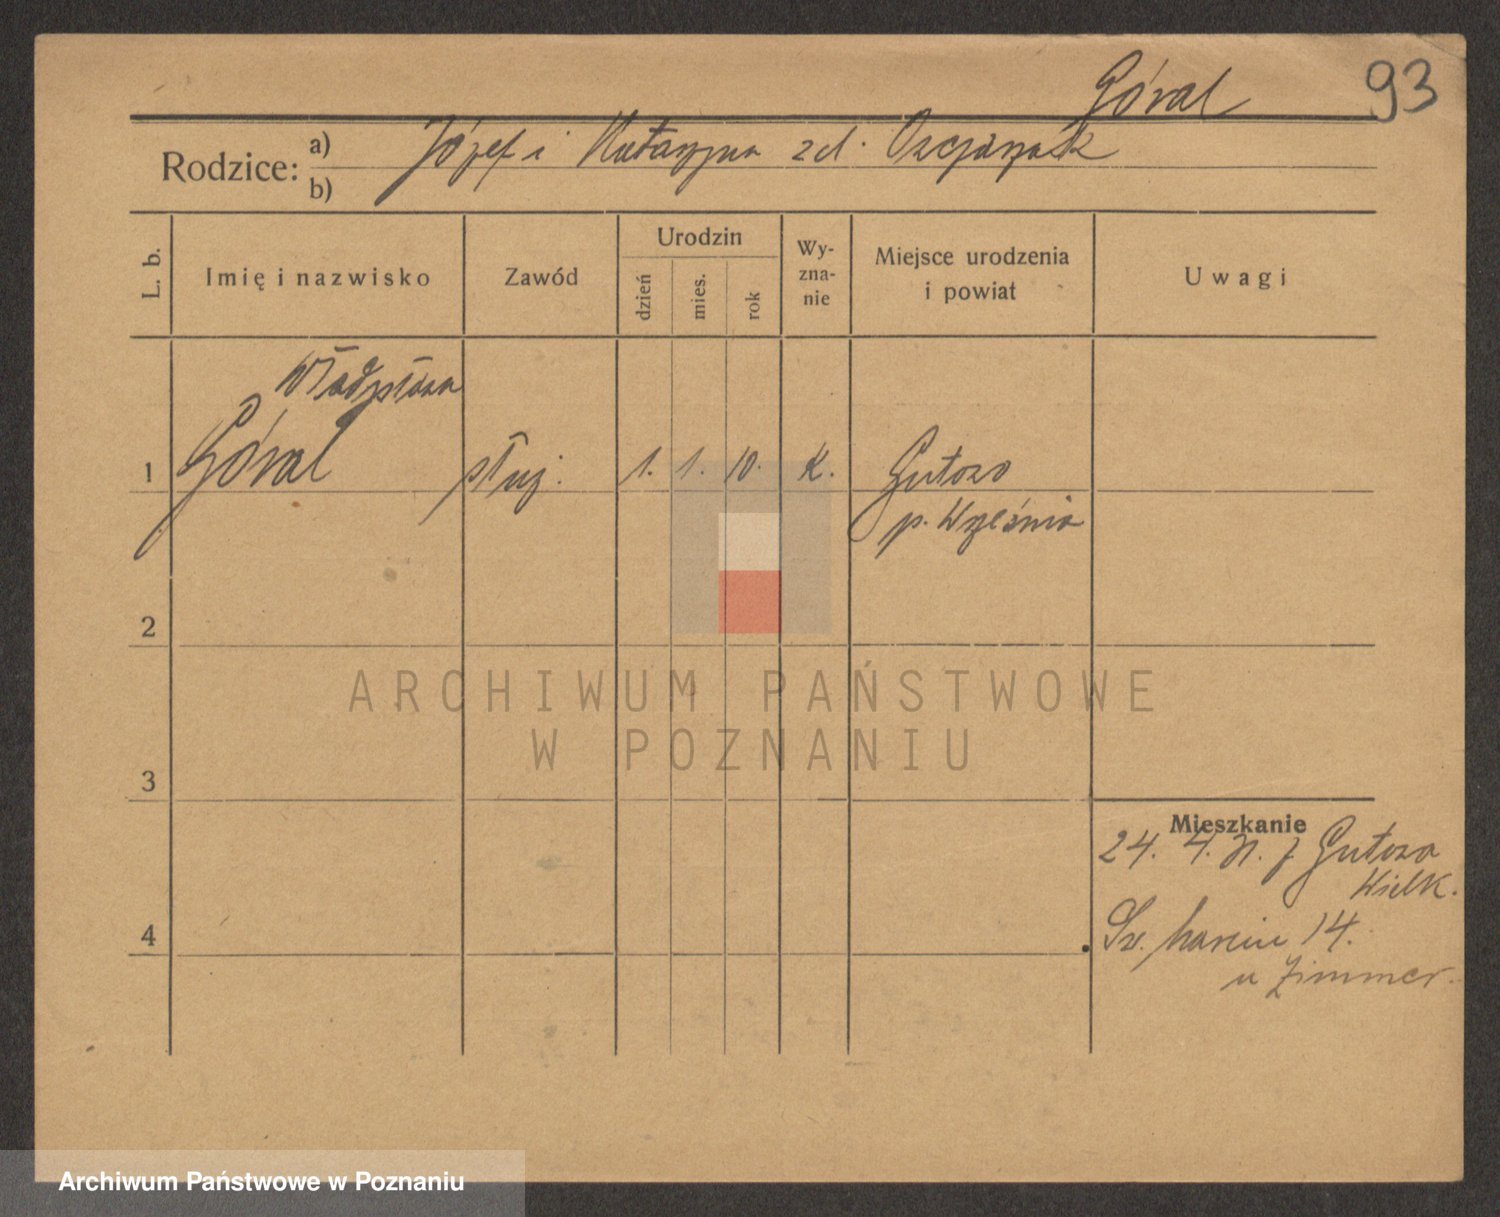 Góral
93
Rodzice: a) Józef i Katarzyna zd.
b)
L. b.
Imię i nazwisko
Zawód
Urodzin
dzień
mies.
rok
Wy-
zna-
nie
Miejsce urodzenia
i powiat
Uwagi
Władysława
1 Góral służ. 1. 1. 10. K. Gutowo
p. Września
2
3
4
Mieszkanie
24. 4. z Gutowa
Wielk.
Św. Marcin 14.
u Zimmer.
ARCHIWUM PAŃSTWOWE
W POZNANIU
Archiwum Państwowe w Poznaniu